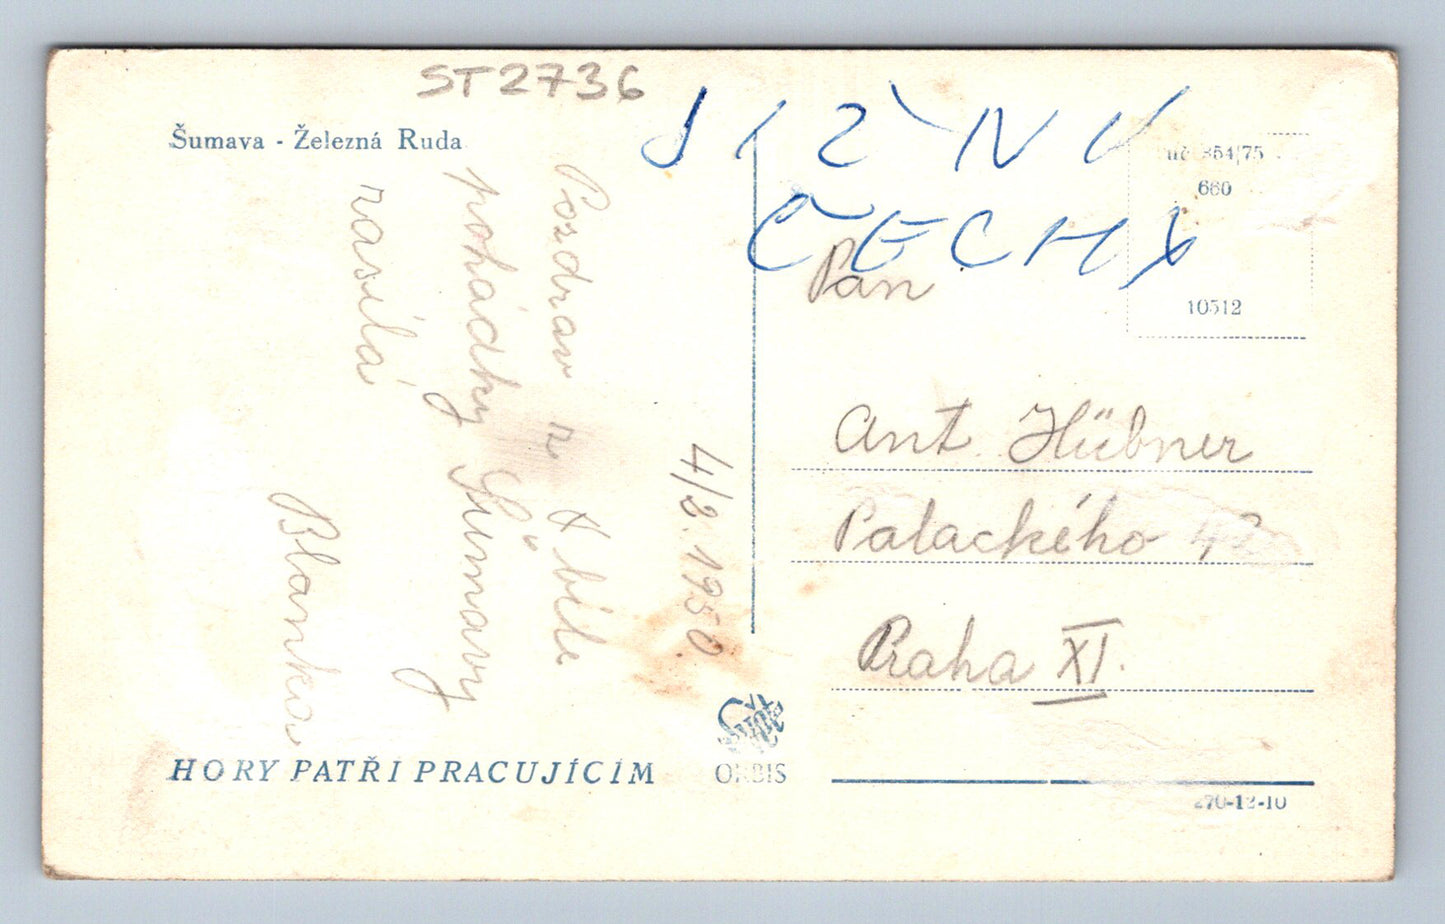 ST2736
Šumava - Železná Ruda
JIŽNÍ
ČECHY
854/75
660
10512
Pozdrav z bílé
pohádky Šumavy
zasílá
Blanka
4/2. 1950.
Pan
Ant. Hübner
Palackého
Praha XI.
HORY PATŘÍ PRACUJÍCÍM
ORBIS
270-12-10